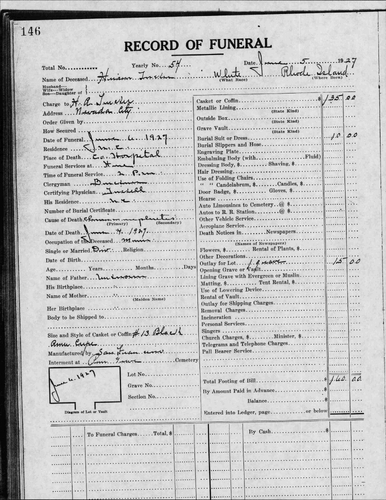 146
RECORD OF FUNERAL
Total No. Yearly No. 54 Date June 5, 1927
Name of Deceased White Rhode Island
(What Race) (Where Born)
Husband—
Wife—Widow
Daughter of
Charge to H. A.
Address Nevada City
Order Given by
How Secured
Date of Funeral June 6, 1927
Residence N.C.
Place of Death Co. Hospital
Funeral Services at Home
Time of Funeral Service 2 P.m.
Clergyman
Certifying Physician
His Residence N.C.
Number of Burial Certificate
Cause of Death
(Primary) (Secondary)
Date of Death June 4, 1927
Occupation of Deceased Miner
Single or Married Div Religion
Date of Birth
Aged Years Months Days
Name of Father Unknown
His Birthplace
Name of Mother
(Maiden Name)
Her Birthplace
Body to be Shipped to
Size and Style of Casket or Coffin 6/3 Black
Crepe
Manufactured by San Fran
Interment at Cemetery
Lot No.
Grave No.
Section No.
June 6, 1927
Diagram of Lot or Vault
Casket or Coffin $ 135 00
Metallic Lining
(State Kind)
Outside Box
(State Kind)
Grave Vault
(State Kind)
Burial Suit or Dress 10 00
Burial Slippers and Hose
Engraving Plate
Embalming Body (with Fluid)
Dressing Body, $ Shaving, $
Hair Dressing
Use of Folding Chairs
" " Candelabrum, $ Candles, $
Door Badge, $ Gloves, $
Hearse
Auto Limousines to Cemetery @ $
Autos to R. R. Station @ $
Other Vehicle Service
Aeroplane Service
Death Notices in Newspapers
(Names of Newspapers)
Flowers, $ Rental of Plants, $
Other Decorations
Outlay for Lot 15 00
Opening Grave or Vault
Lining Grave with Evergreen or Muslin
Matting, $ Tent Rental, $
Use of Lowering Device
Rental of Vault
Outlay for Shipping Charges
Removal Charges
Incineration
Personal Services
Singers
Church Charges, $ Minister, $
Telegrams and Telephone Charges
Pall Bearer Service
Total Footing of Bill $ 160 00
By Amount Paid in Advance
Balance
Entered into Ledger, page or below
To Funeral Charges Total, $ By Cash $